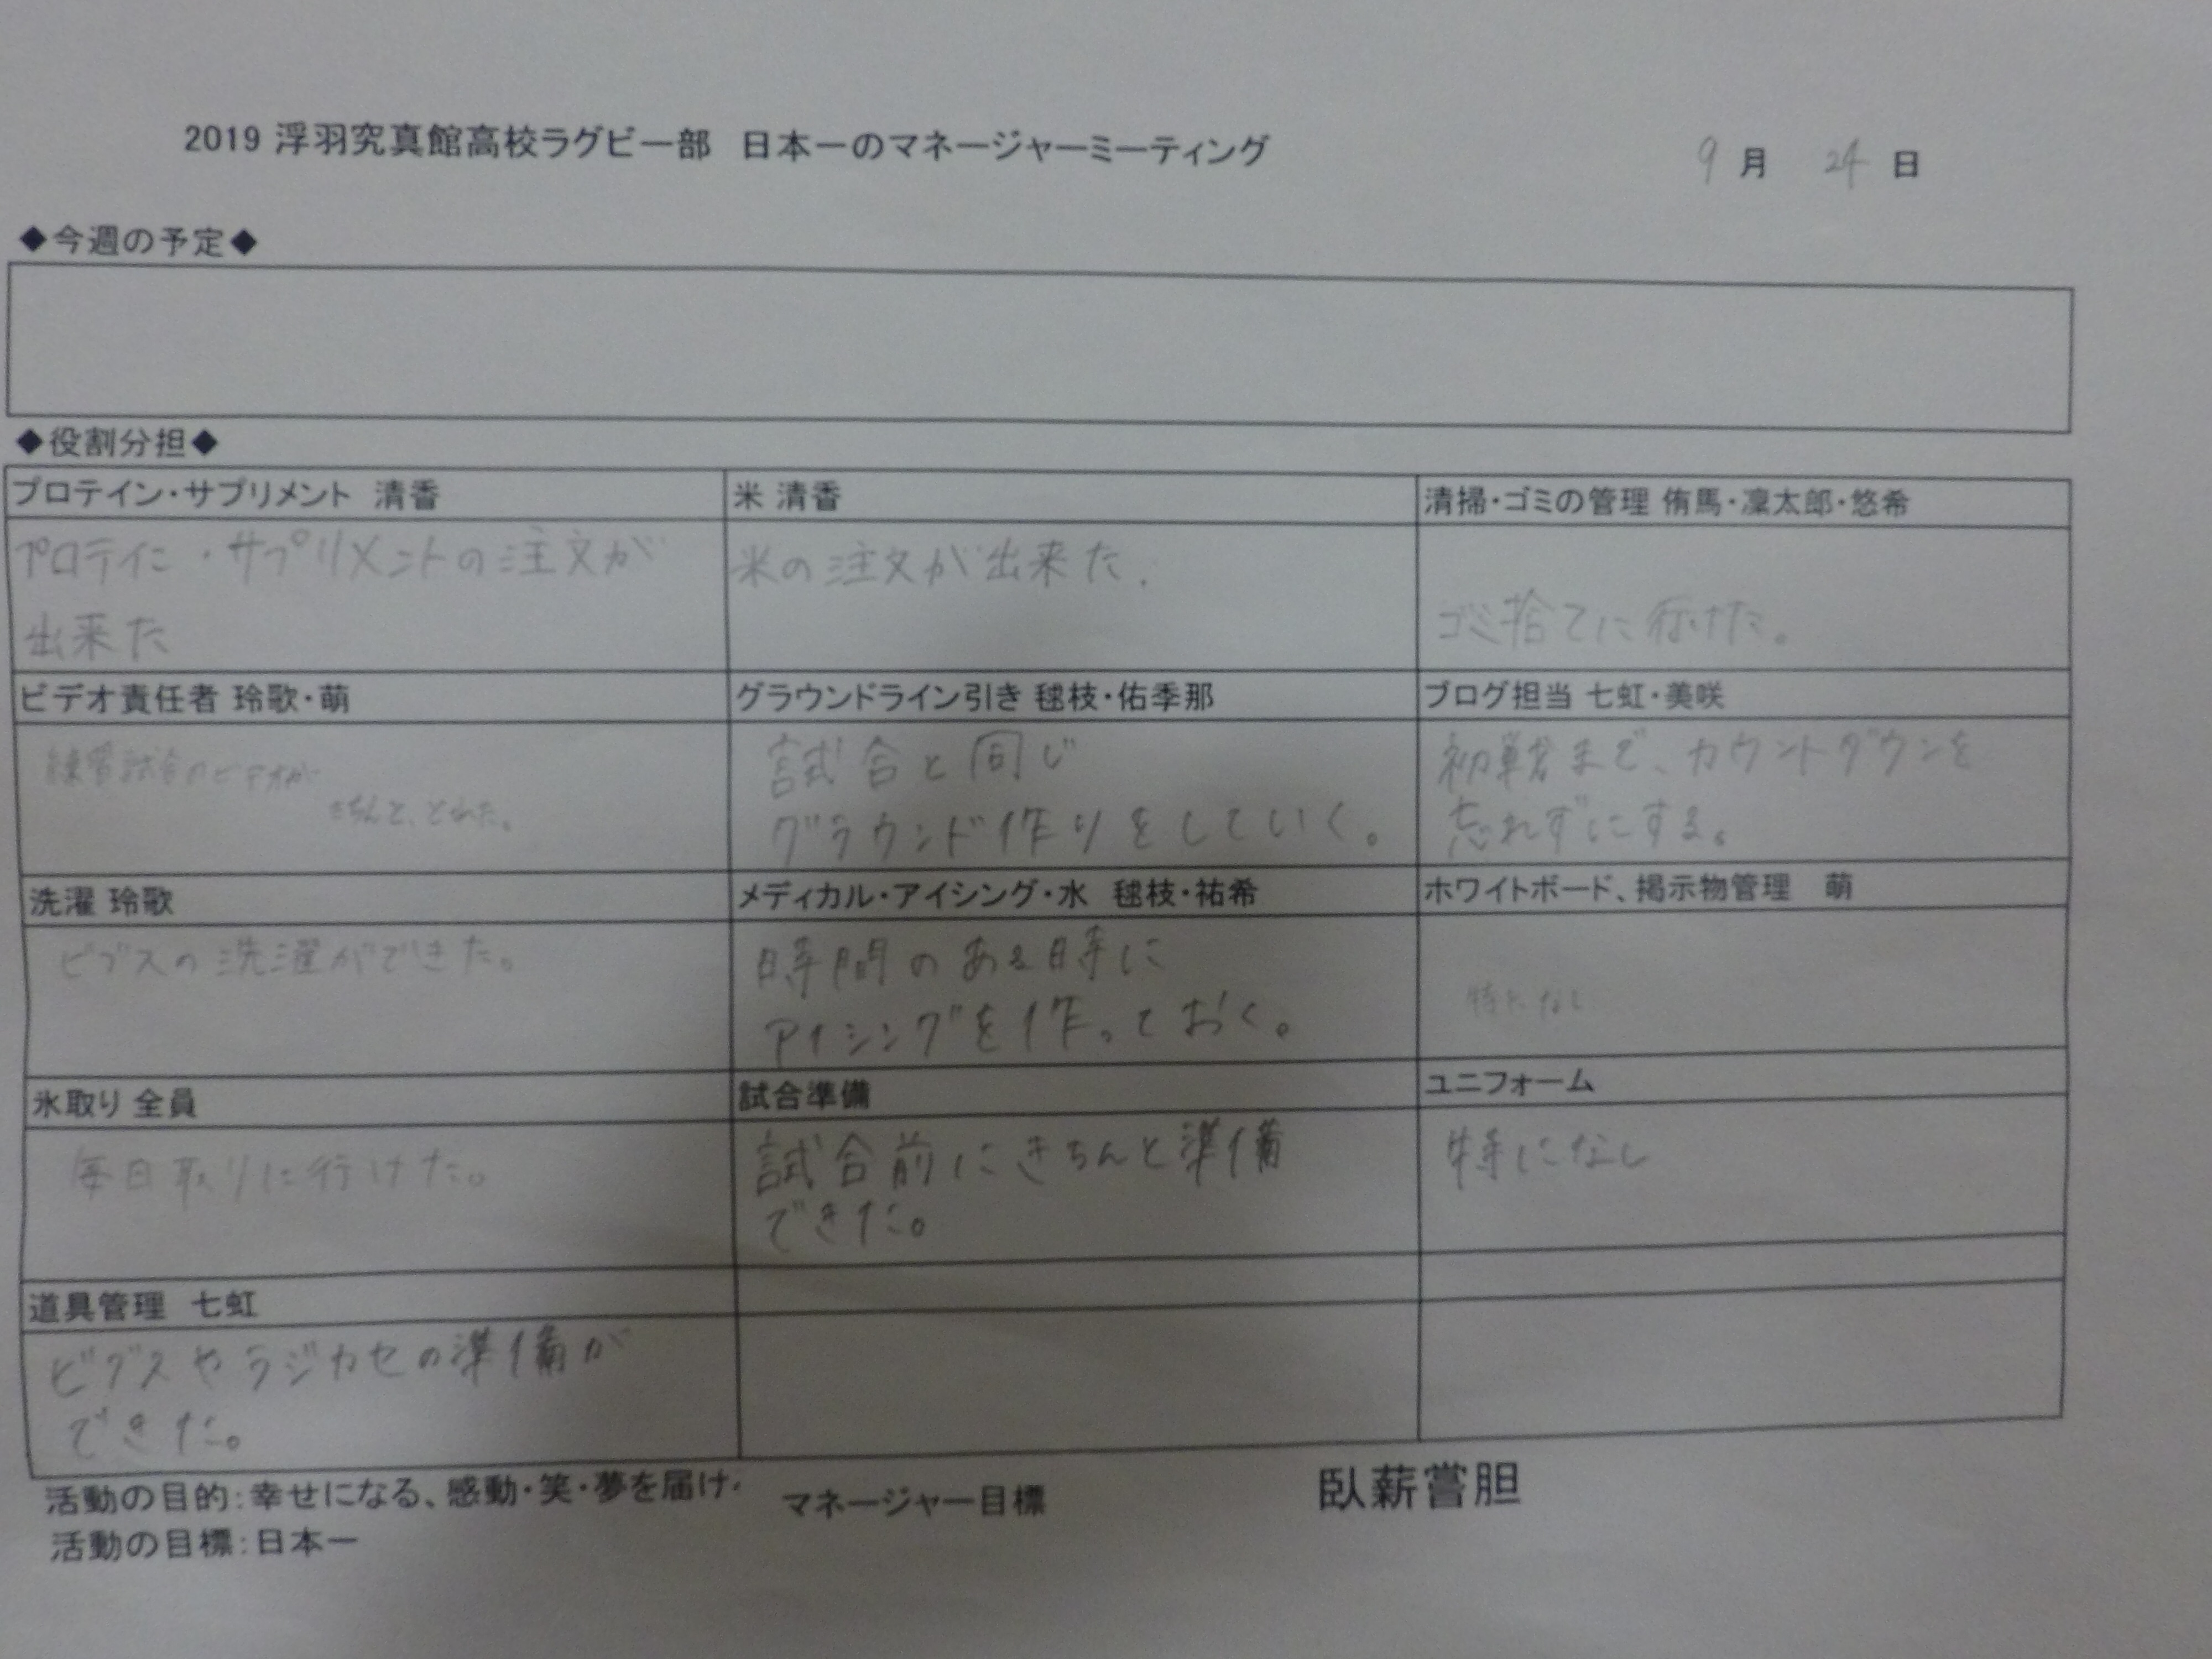 2019 浮羽究真館高校ラグビー部　日本一のマネージャーミーティング
9 月　24 日
◆今週の予定◆
◆役割分担◆
プロテイン・サプリメント　清香
米 清香
清掃・ゴミの管理 侑馬・凜太郎・悠希
プロテイン・サプリメントの注文が
出来た
米の注文が出来た.
ゴミ捨てに行けた。
ビデオ責任者 玲歌・萌
グラウンドライン引き 毬枝・佑季那
ブログ担当 七虹・美咲
練習試合のビデオが
きちんと、とれた。
試合と同じ
グラウンド作りをしていく。
初戦まで、カウントダウンを
忘れずにする。
洗濯 玲歌
メディカル・アイシング・水　毬枝・祐希
ホワイトボード、掲示物管理　萌
ビブスの洗濯ができた。
時間のある時に
アイシングを作っておく。
特になし
氷取り 全員
試合準備
ユニフォーム
毎日取りに行けた。
試合前にきちんと準備
できた。
特になし
道具管理　七虹
ビブスやラジカセの準備が
できた。
活動の目的：幸せになる、感動・笑・夢を届け
マネージャー目標
臥薪嘗胆
活動の目標：日本一